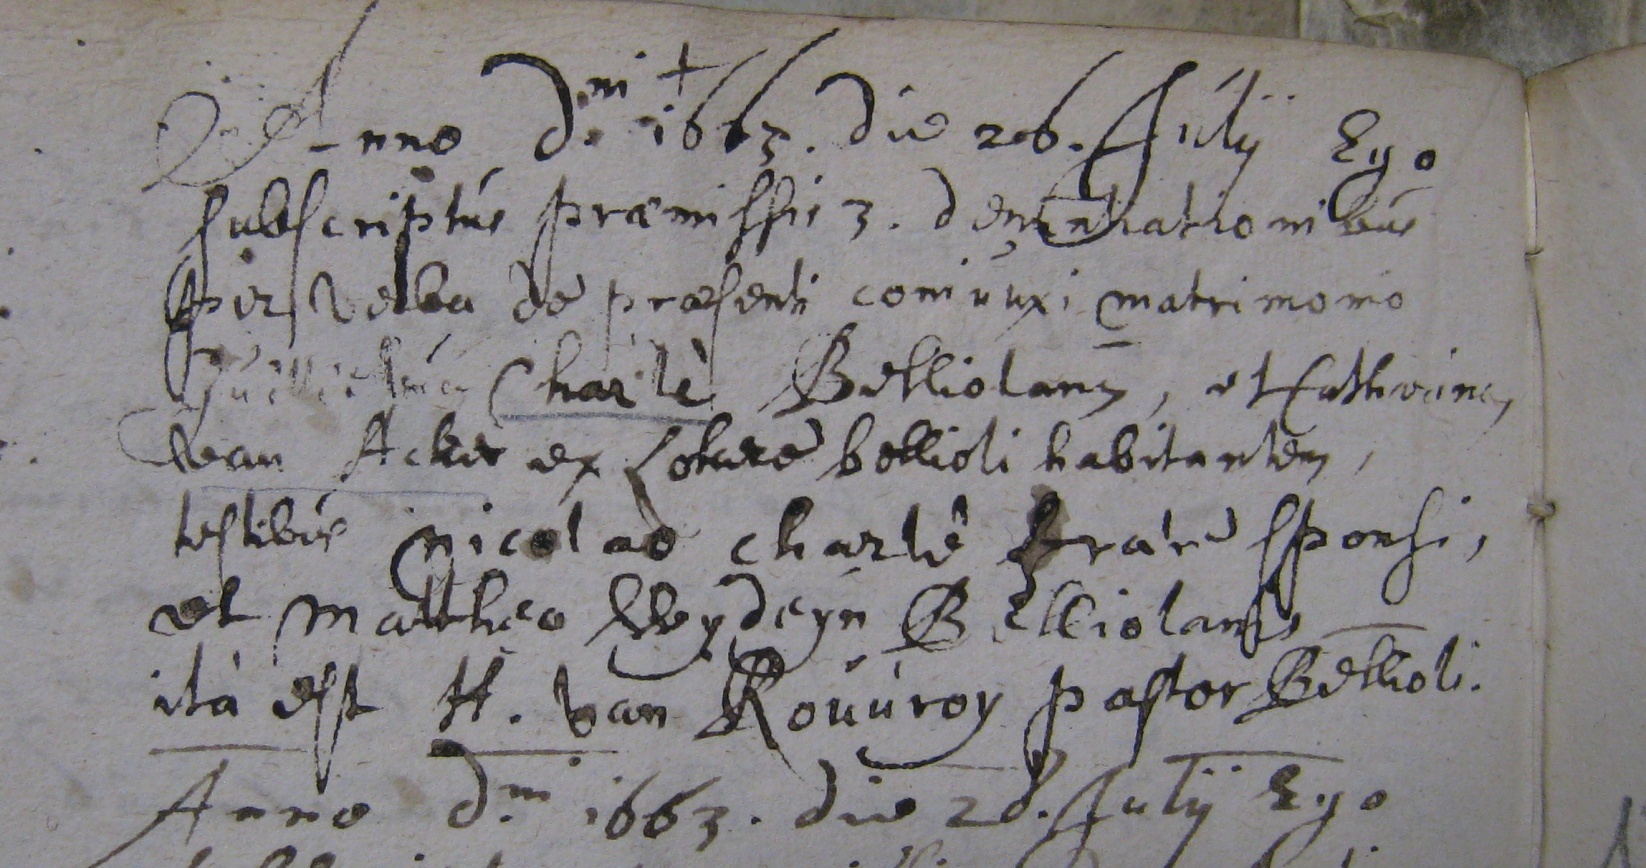 Anno d.ni 1663. die 26. Julij Ego
subscriptus præmissis 3. denuntiationibus
per verba de præsenti coniunxi matrimonio
Charlè Belliolanũ, et Catharinã
van Acker ex Lokere bellioli habitantem,
testibus nicolao charlè fratre sponsi,
et Mattheo Weydeÿn Belliolanis
ità est H. van Roùùroy pastor Bellioli.
Anno d.ni 1663. die 28. Julij Ego